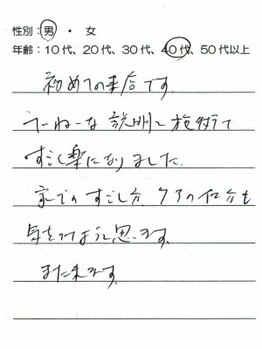 性別：男 ・ 女
年齢：10代、20代、30代、40代、50代以上
初めての来院です。
てーねーな説明と施術で
すごし楽になりました。
家でのすごし方、ケアの仕方も
気をつけようと思います。
また来ます。